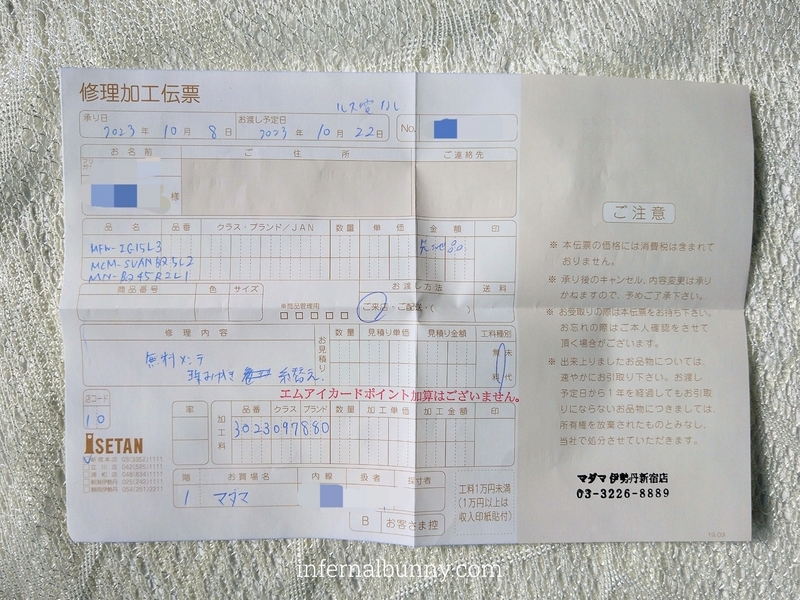 修理加工伝票
ルス電ナル
承り日 2023年 10月 8日 お渡し予定日 2023年 10月 22日 No.
お名前 ご住所 ご連絡先
様
品名 品番 クラス・ブランド/JAN 数量 単価 金額 印
MCM-SVAN
商品番号 色 サイズ ※商品管理用 お渡し方法 送料
ご来店・ご配送・( )
修理内容 お見積り 数量 見積り単価 見積り金額 工料種別
無料メンテ
糸替え
エムアイカードポイント加算はございません。
店コード 10
客 加工料 品番 クラス ブランド 数量 加工単価 加工金額 印
3023097880
ISETAN
階 お買場名 内線 扱者 採寸者
1 マダマ
工料1万円未満
(1万円以上は
収入印紙貼付)
B お客さま控
ご注意
※ 本伝票の価格には消費税は含まれて
おりません。
※ 承り後のキャンセル、内容変更は承り
かねますので、予めご了承下さい。
※ お受取りの際は本伝票をお持ち下さい。
お忘れの際はご本人確認をさせて
頂く場合がございます。
※ 出来上りましたお品物については、
速やかにお引取り下さい。お渡し
予定日から1年を経過してもお引取
りにならないお品物につきましては、
所有権を放棄されたものとみなし、
当社で処分させていただきます。
マダマ 伊勢丹新宿店
03-3226-8889
infernalbunny.com